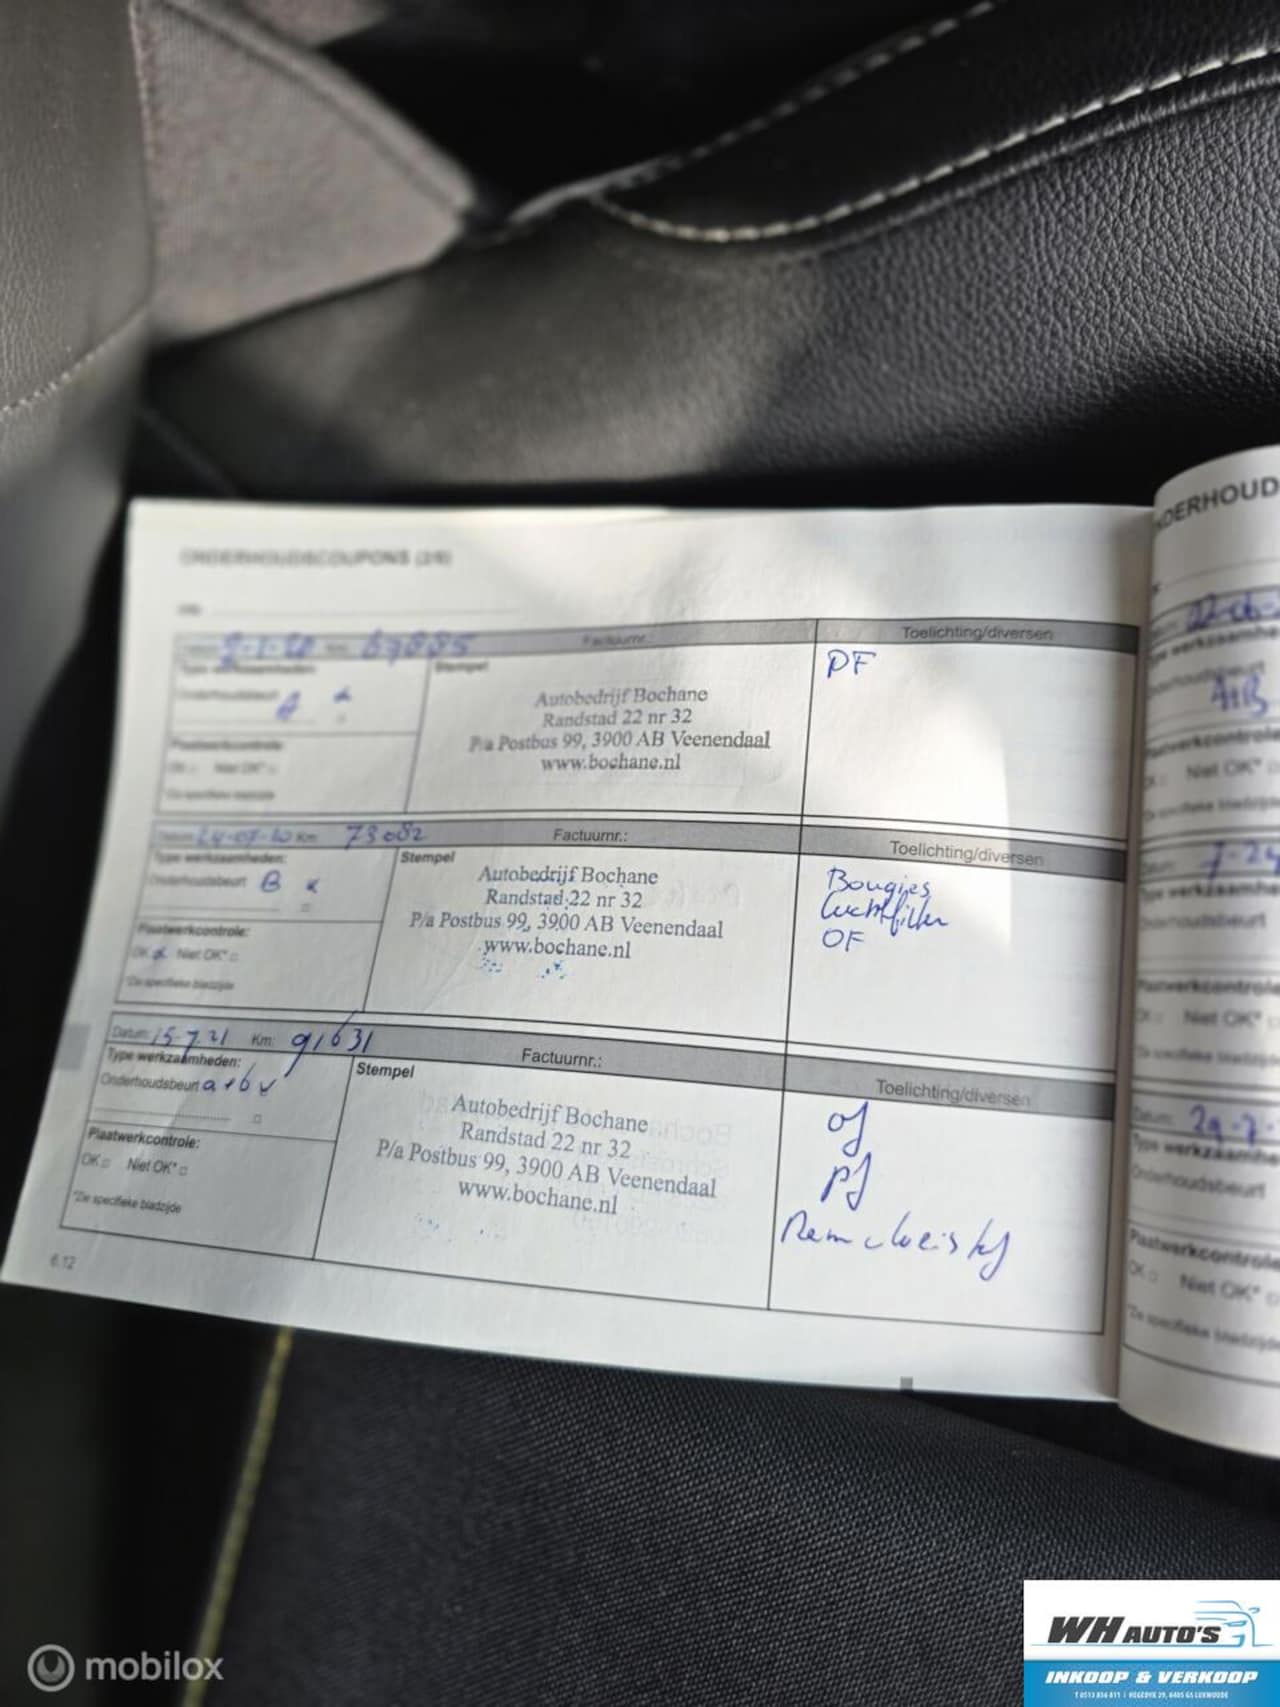 ONDERHOUDSCOUPONS (2/6)
Km: 67885 Factuurnr.: Toelichting/diversen
Type werkzaamheden:
Onderhoudsbeurt A x
Plaatwerkcontrole:
OK Niet OK*
*Zie specifieke bladzijde
Stempel
Autobedrijf Bochane
Randstad 22 nr 32
P/a Postbus 99, 3900 AB Veenendaal
www.bochane.nl
PF
Datum: 24-07-20 Km: 73082 Factuurnr.: Toelichting/diversen
Type werkzaamheden:
Onderhoudsbeurt B x
Plaatwerkcontrole:
OK x Niet OK*
*Zie specifieke bladzijde
Stempel
Autobedrijf Bochane
Randstad 22 nr 32
P/a Postbus 99, 3900 AB Veenendaal
www.bochane.nl
Bougies
Luchtfilter
OF
Datum: 15-7-21 Km: 91631 Factuurnr.: Toelichting/diversen
Type werkzaamheden:
Onderhoudsbeurt a+b v
Plaatwerkcontrole:
OK Niet OK*
*Zie specifieke bladzijde
Stempel
Autobedrijf Bochane
Randstad 22 nr 32
P/a Postbus 99, 3900 AB Veenendaal
www.bochane.nl
of
pf
Remvloeistof
6.12
Type werkzaamhe
Onderhoudsbeurt
A+B
Plaatwerkcontrole
OK Niet OK*
7-24
Onderhoudsbeurt
Plaatwerkcontrole
OK Niet OK*
Datum: 29-7-
Type werkzaamhe
Onderhoudsbeurt
Plaatwerkcontrole
OK Niet OK*
*Zie specifieke bladzijde
mobilox
WH AUTO'S
INKOOP & VERKOOP